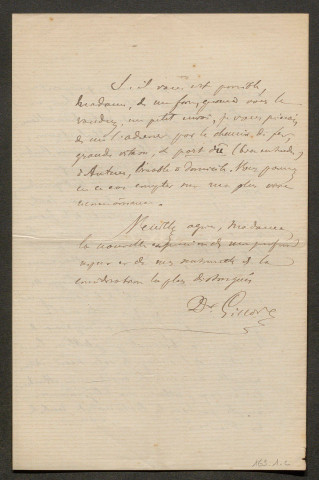 S'il vous est possible,
Madame, de me faire, quand vous le
voudrez, un petit envoi, je vous prierais
de me l'adresser par le chemin de fer,
grande vitesse, et port dû (bien entendu)
à domicile. Vous pouvez
en ce cas compter sur ma plus vive
reconnaissance.
Veuillez agréer, Madame,
la nouvelle expression de mon profond
respect et de mes sentiments de la
considération la plus distinguée
Dr